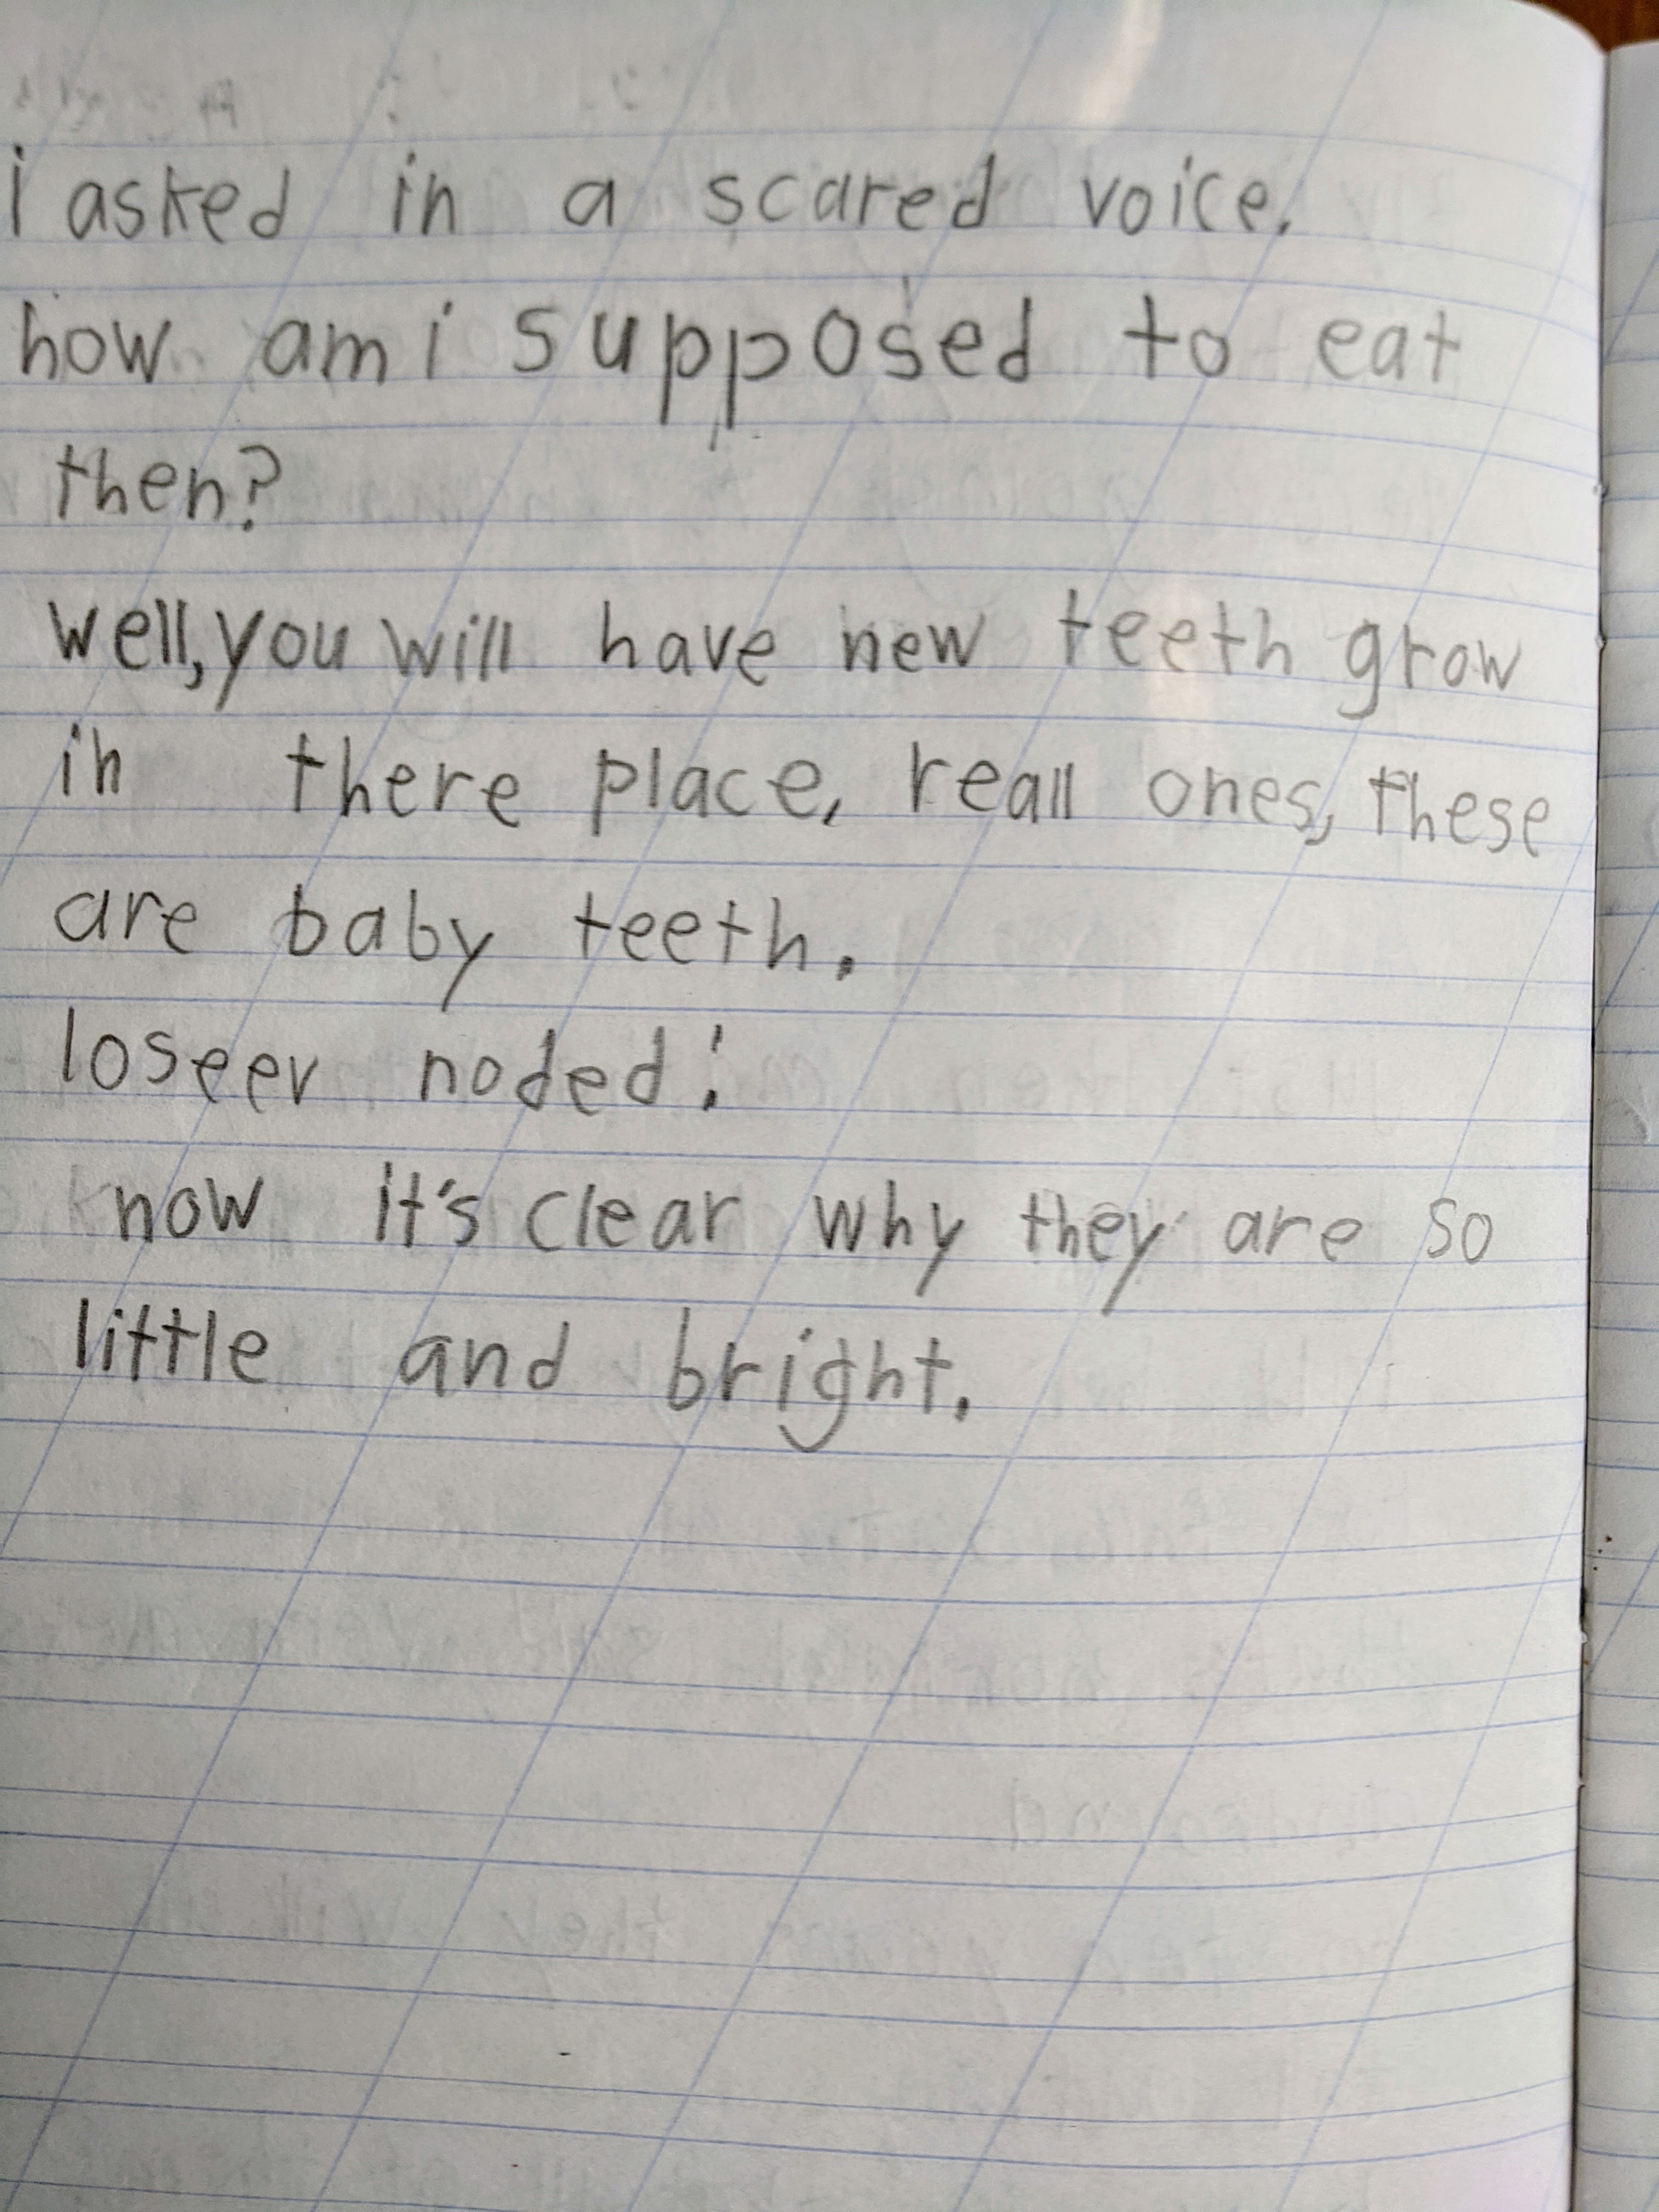 i asked in a scared voice.
how am i supposed to eat
then?
well, you will have new teeth grow
in there place, reall ones, these
are baby teeth.
loseer noded!
now it's clear why they are so
little and bright.